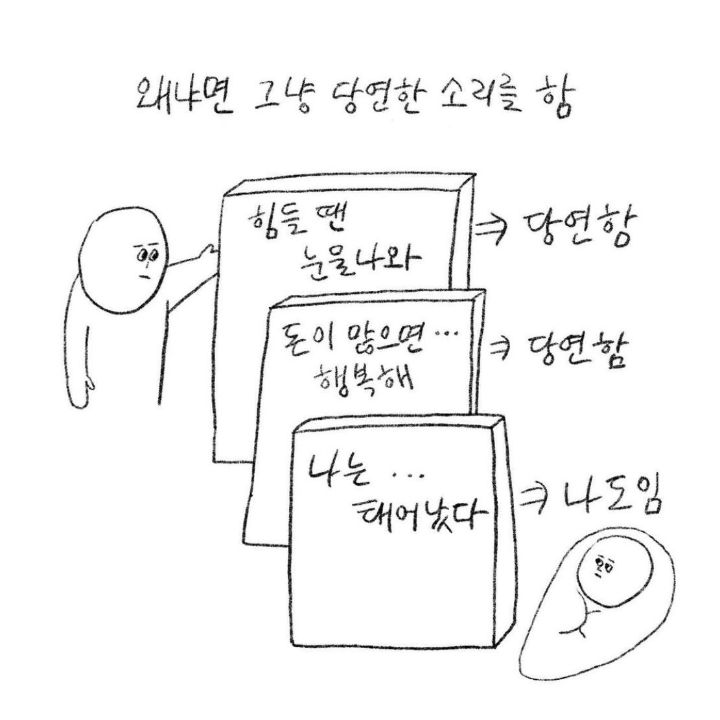 왜냐면 그냥 당연한 소리를 함
힘들 땐
눈물나와
⇒ 당연함
돈이 많으면…
행복해
⇒ 당연함
나는 …
태어났다
⇒ 나도임